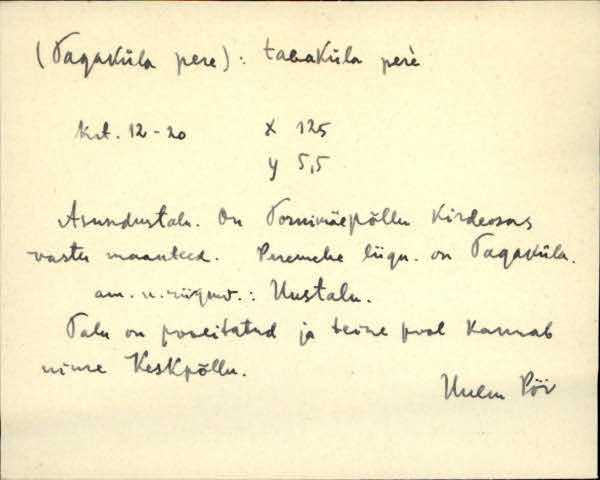 (Tagaküla pere): taGaküla perè
krt. 12-20 X 125
y 5,5
Asundustalu. On Tornimäepõllu kirdeosas
vastu maanteed. Peremehe liign. on Tagaküla.
am. n. : Uustalu.
Talu on pooleitatud ja teine pool kannab
nime Keskpõllu.
Pöi